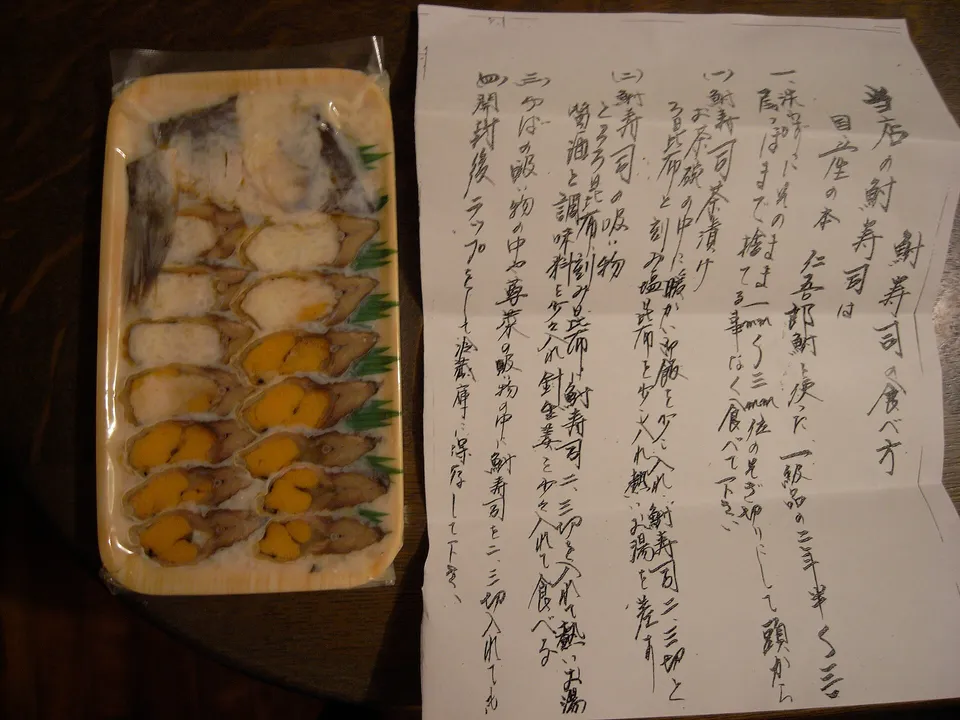 鮒寿司の食べ方
当店の鮒寿司は
目造の本 仁吾郎鮒を使った、一級品の二年半〜三
一、そのまま一mm〜三mm位のそぎ切りにして頭から
尾っぽまで捨てる事なく食べて下さい
(一)鮒寿司茶漬け
お茶碗の中に暖かい御飯を少し入れ、鮒寿司二、三切と
昆布と刻み塩昆布を少々入れ熱いお湯を差す
(二)鮒寿司の吸い物
とろろ昆布、刻み昆布に鮒寿司二、三切を入れて熱いお湯
醤油と調味料を少々入れ針生姜を少々入れて食べる
(三)の吸い物の中や蓴菜の吸い物の中に鮒寿司を二、三切入れても
(四)開封後ラップをして冷蔵庫に保存して下さい